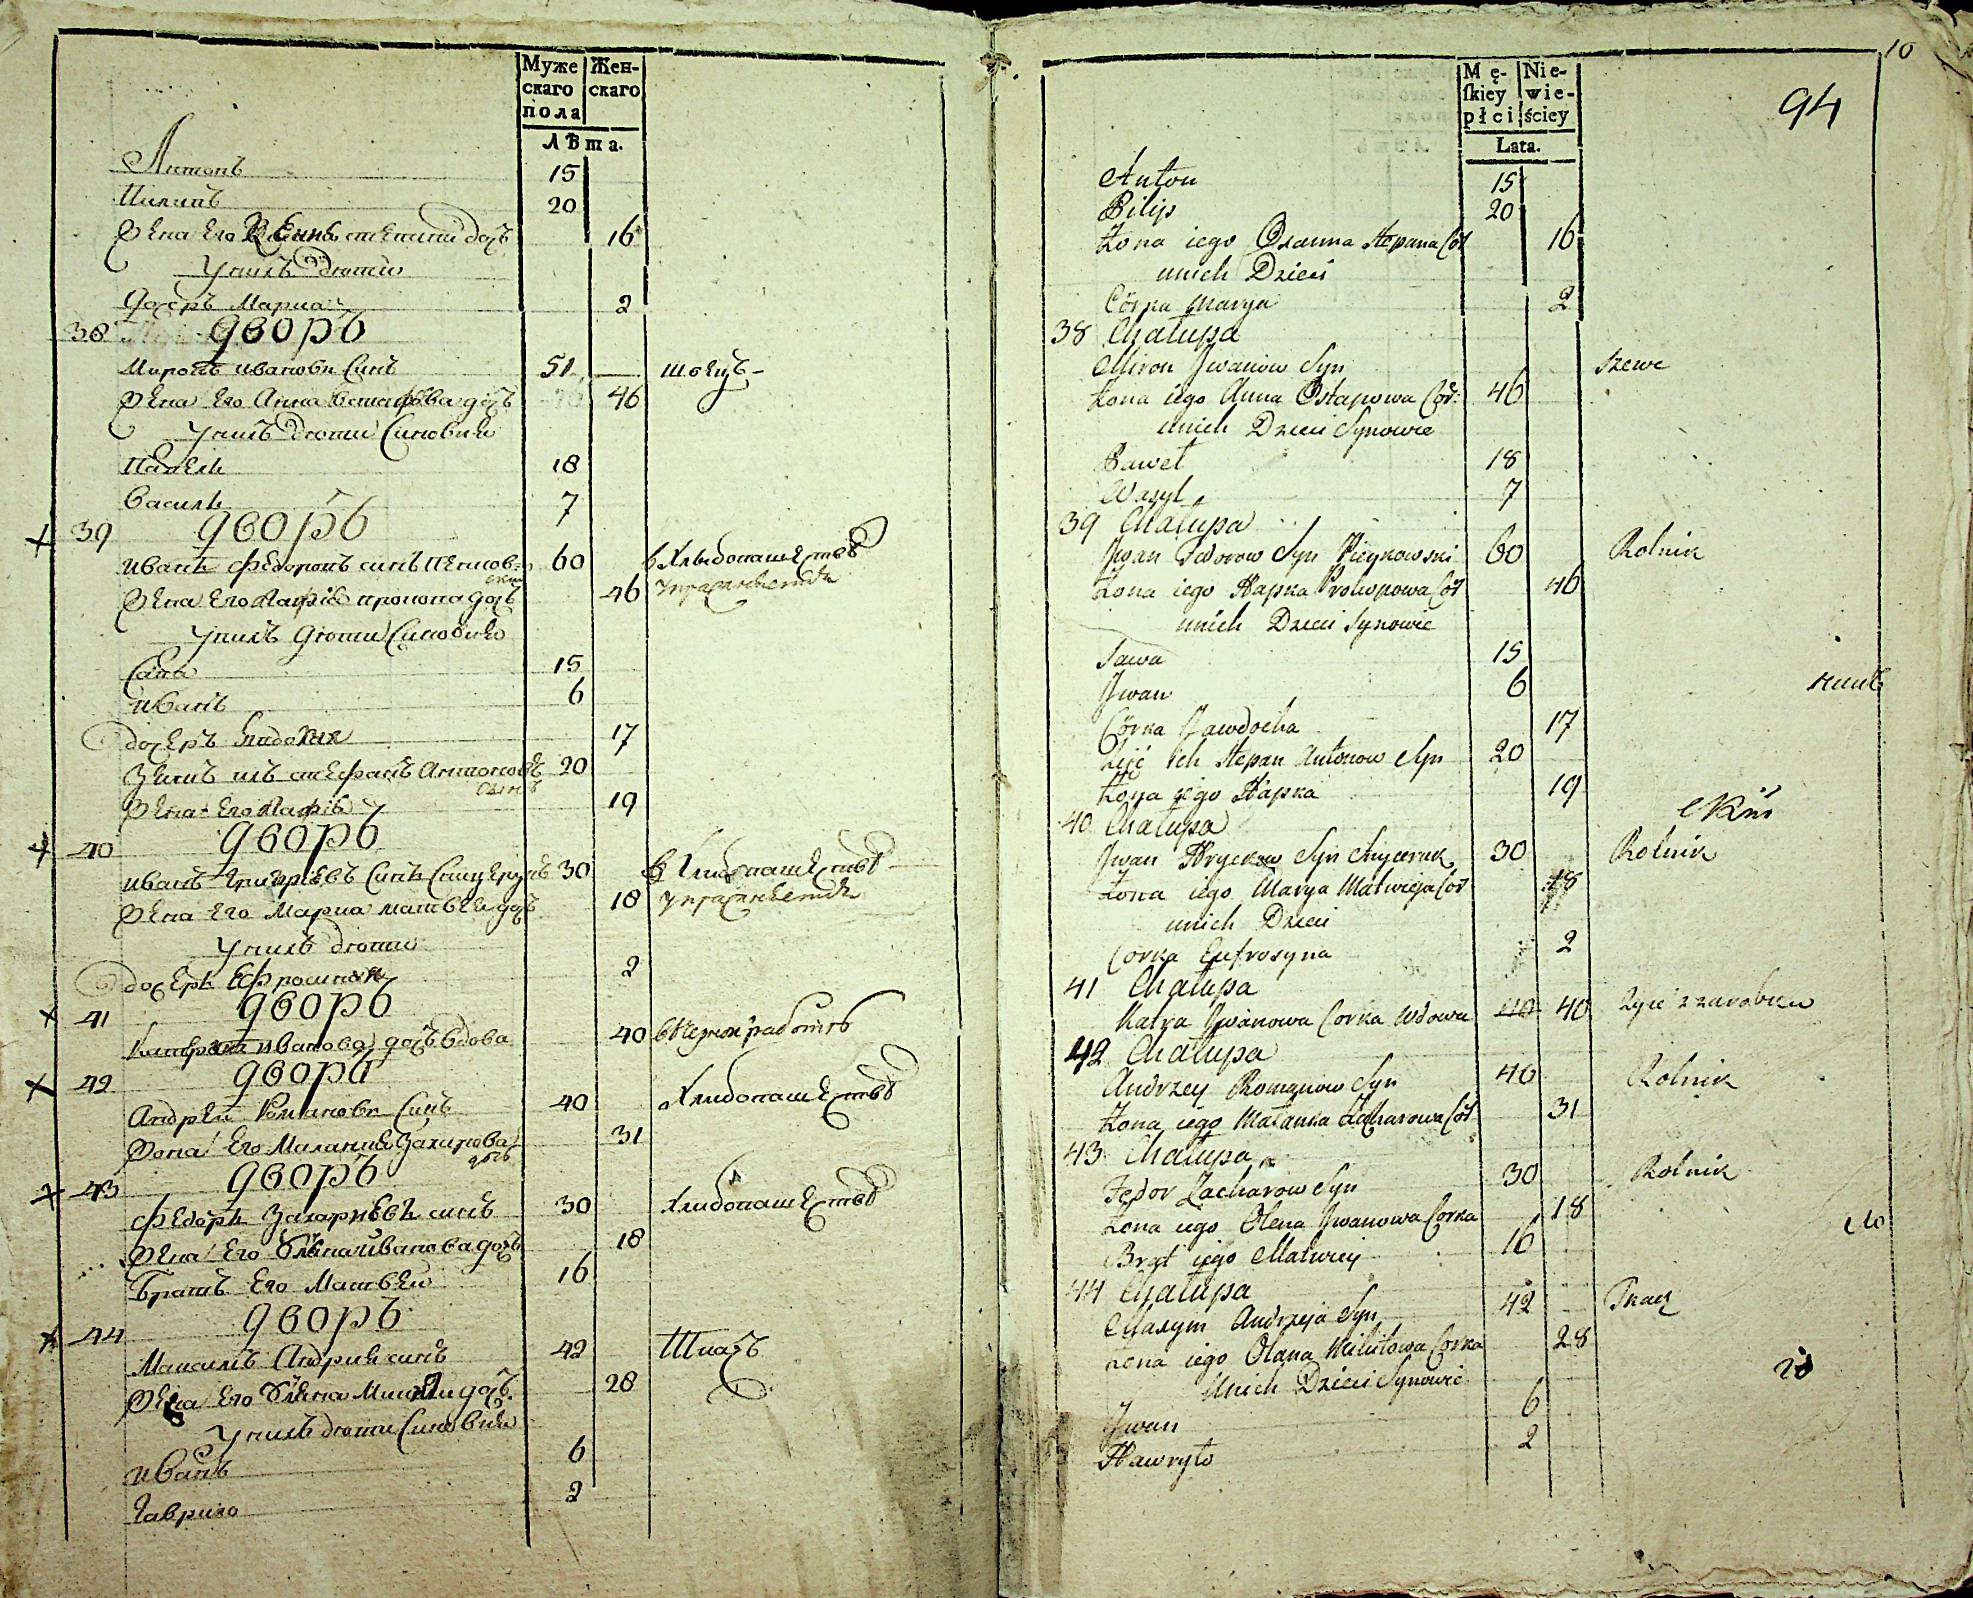 Муже Жен-
скаго скаго
пола
Лѣта.
Антонъ 15
Пилипъ 20
Жена Его Ксеня степина дочъ 16
Унихъ дюти
Дочеръ Мариа 2
38 дворъ
Миронъ Ивановъ Синъ 51 швецъ
Жена Его Анна Остапова дочъ 46
Унихъ дюти Синовия
Павелъ 18
Василь 7
39 дворъ
Иванъ Федоровъ синъ Пенков-
ски 60 в Хлыбопашествѣ
Жена Его Гапка прокопа дочъ 46 упражняется
Унихъ дюти Синовия
Сава 15
Иванъ 6
дочеръ Явдокия 17
Зять ихъ стефанъ Антоновъ 20
Синъ
Жена Его Гапка 19
40 дворъ
Иванъ Григориевъ Синъ 30 в Хлибопашествѣ
Жена Его Мариа матвеи дочъ 18 упражняется
Унихъ дюти
дочеръ Ефросиния 2
41 дворъ
Катрына Иванова дочъ вдова 40 в черной работѣ
42 дворъ
Андрей Романовъ Синъ 40 Хлибопашествѣ
Жена Его Малания Захарова 31
дочъ
43 дворъ
Федоръ Захариевъ синъ 30 Хлибопашествѣ
Жена Его Олена Иванова дочъ 18
Братъ Его Матвей 16
44 дворъ
Максимъ Андрия синъ 42 Ткачъ
Жена Его Олена Микити дочъ 28
Унихъ дюти Синовия
Иванъ 6
Гаврило 2
10
94
Mę- Nie-
ſkiey wie-
płci ściey
Lata.
Anton 15
Pilip 20
Żona iego Oxanna Stepana Cór 16
unich Dzieci
Córka Marya 2
38 Chałupa
Miron Jwanow Syn Szewc
Żona iego Anna Ostapowa Cór: 46
unich Dzieci Synowie
Paweł 18
Wasyl 7
39 Chałupa
Jwan Fedorow Syn Pieńkowski 60 Rolnik
Żona iego Hapka Prokopowa Cór 46
unich Dzieci Synowie
Sawa 15
Jwan 6
Córka Jawdocha 17
Zięć ich Stepan Antonow Syn 20
Żona iego Hapka 19
40 Chałupa
Jwan Hryckow Syn 30 Rolnik
Żona iego Marya Matwieja Cór 18
unich Dzieci
Corka Eufrosyna 2
41 Chałupa
Katra Jwanowa Corka Wdowa 40 40 Żyie z zarobku
42 Chałupa
Andrzey Romanow Syn 40 Rolnik
Żona iego Małanka Zacharowa Cór 31
43 Chałupa
Fedor Zacharow Syn 30 Rolnik
Żona iego Olena Jwanowa Corka 18
Brat iego Matwiey 16
44 Chałupa
Maxym Andrzeja Syn 42 Tkacz
Żona iego Olana Mikitowa Corka 28
Unich Dzieci Synowie
Jwan 6
Hawryło 2